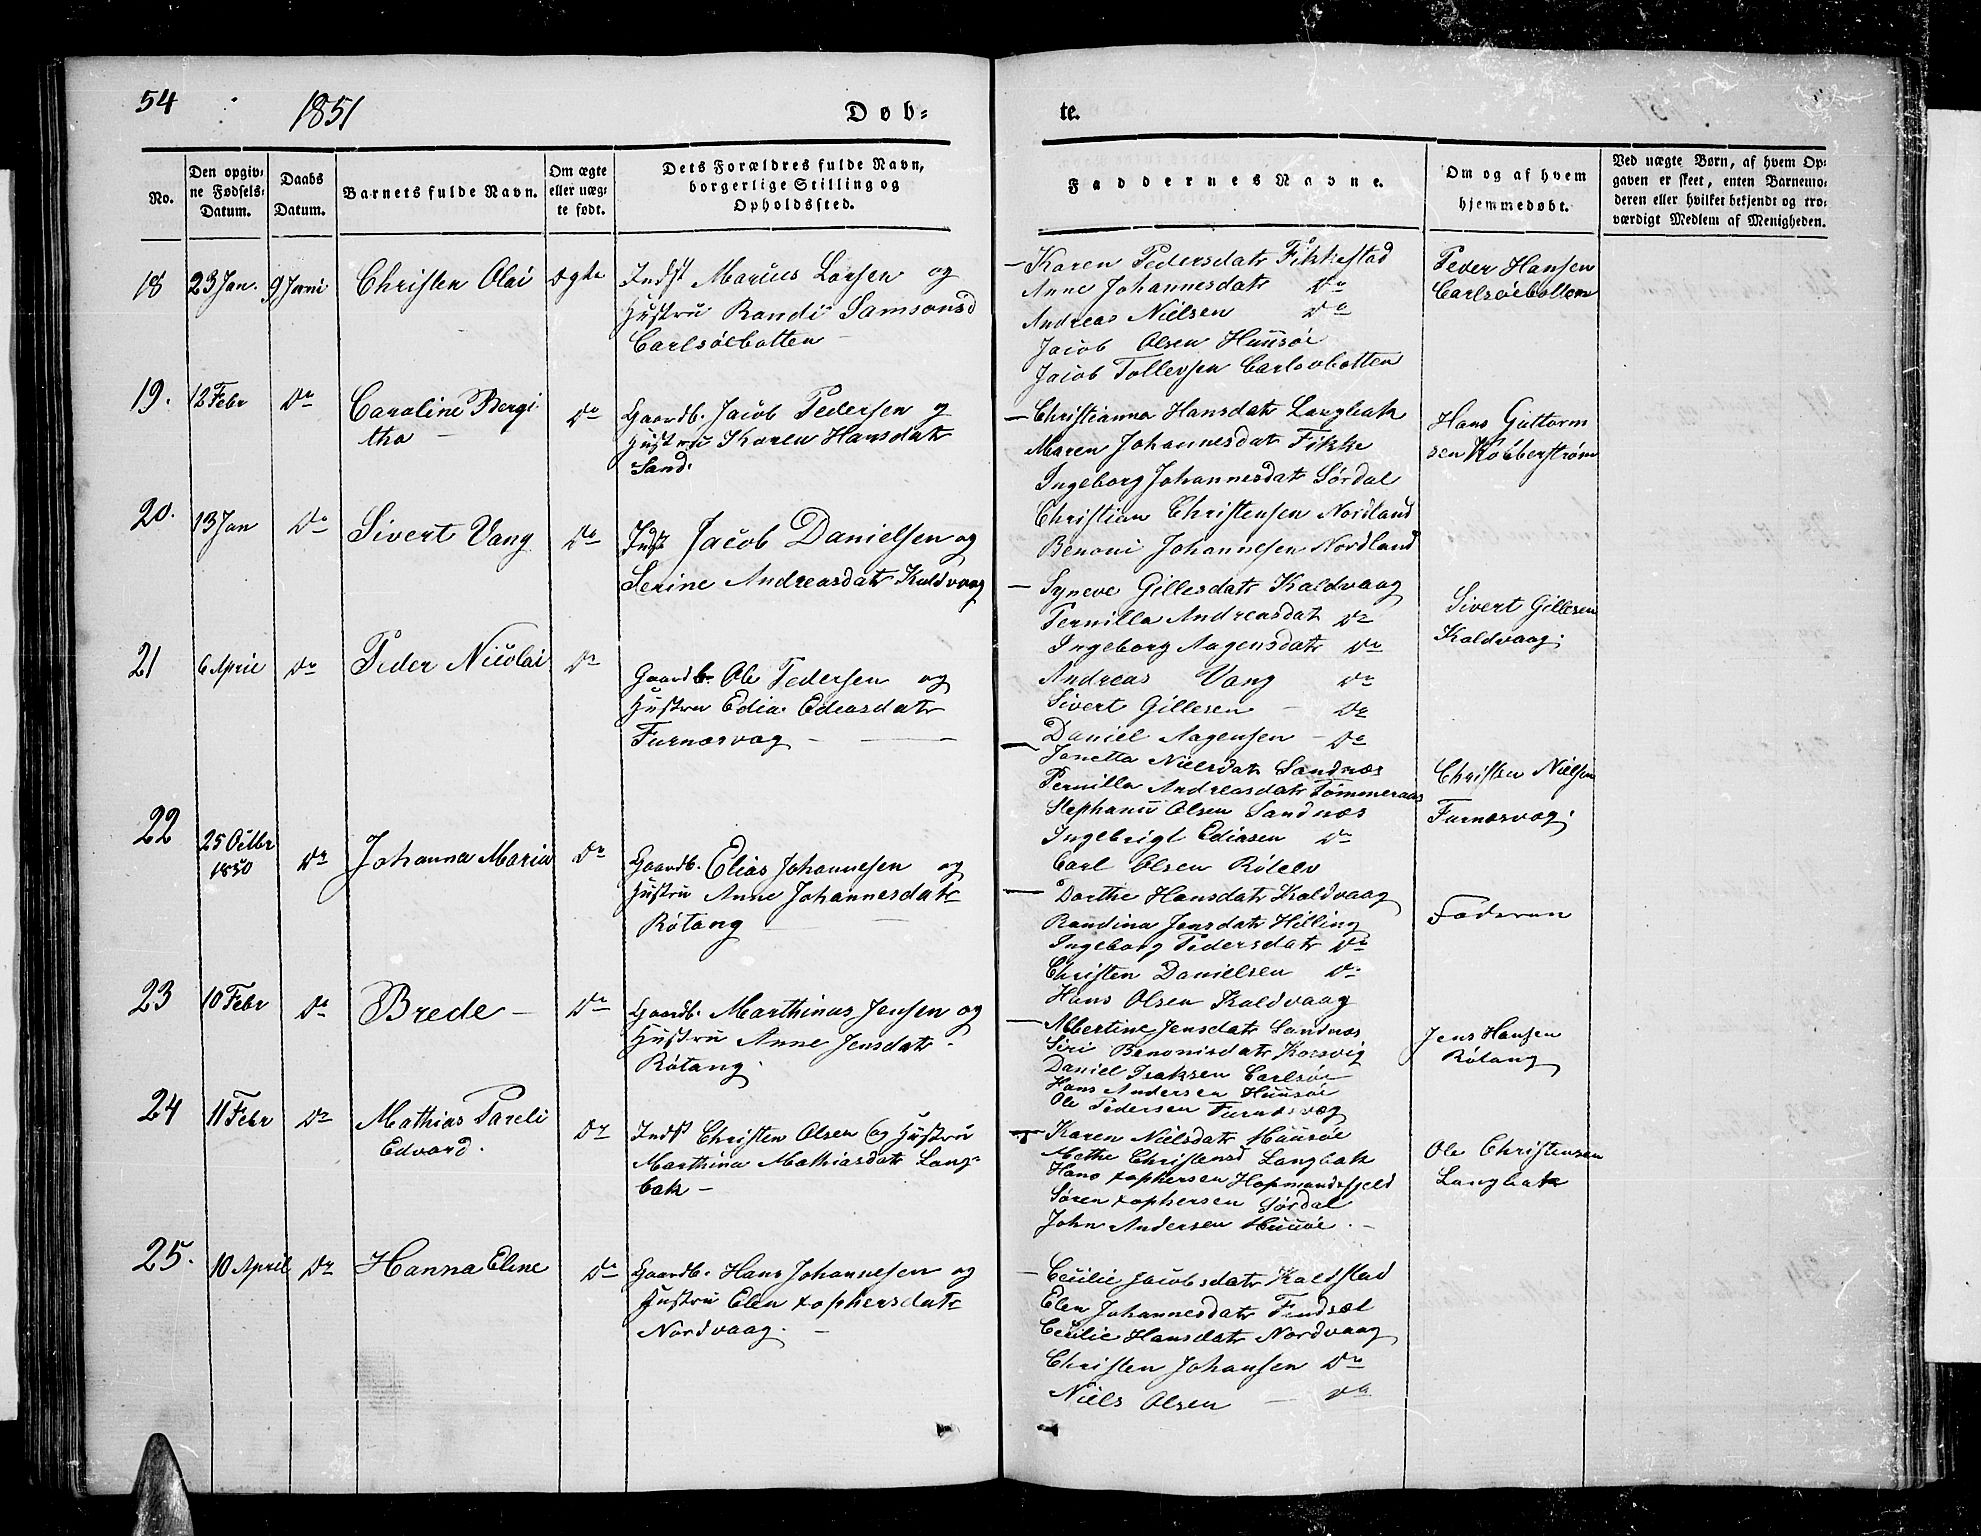 54
1851
Døb-
te.
No.
Den opgiv-
ne Fødsels-
Datum.
Daabs
Datum.
Barnets fulde Navn.
Om ægte
eller uæg-
te født.
Dets Forældres fulde Navn,
borgerlige Stilling og
Opholdssted.
Faddernes Navne.
Om og af hvem
hjemmedøbt.
Ved uægte Børn, af hvem Op-
gaven er skeet, enten Barnemo-
deren eller hvilket bekjendt og tro-
værdigt Medlem af Menigheden.
18
23 Jan.
9 Juni
Christen Olai
ægte
Indst Marius Larsen og
Hustru Randi Samsonsd
Carlsöebotten
Karen Pedersdatr Fikkestad
Anne Johannesdatr Do
Andreas Nielsen Do
Jacob Olsen Huusöe
Jacob Tollevsen Carlsobotten
Peder Hansen
Carlsöebotten
19.
12 Febr
Do
Caroline Bergi
tha
Do
Gaardb. Jacob Pedersen og
Hustru Karen Hansdatr
Sand.
Christianna Hansdatr Langbak
Maren Johannesdatr Fikke
Ingeborg Johannesdatr Sördal
Christian Christensen Nordland
Benoni Johannesen Nordland
Hans Guttorm
sen Kobberström
20.
13 Jan
Do
Sivert Vang
Do
Indst Jacob Danielsen og
Serine Andreasdatr Kaldvaag
Syneve Gillesdatr Kaldvaag
Pernilla Andreasdat Do
Ingeborg Aagensdatr Do
Andreas Vang Do
Sivert Gillesen Do
Daniel Aagensen Do
Sivert Gillesen
Kaldvaag.
21
6 April
Do
Peder Nicolai
Do
Gaardb. Ole Pedersen og
Hustru Edia Ediasdatr
Furnæsvag
Janetta Nielsdatr Sandnæs
Pernilla Andreasdatr Tömmeraas
Stephanu Olsen Sandnæs
Ingebrigt Ediasen Do
Carl Olsen Rötelv
Christen Nielsen
Furnæsvag.
22
25 Octbr
1850
Do
Johanna Maria
Do
Gaardb. Elias Johannesen og
Hustru Anne Johannesdatr
Rötang
Dorthe Hansdatr Kaldvaag
Randina Jensdatr Helling
Ingeborg Pedersdatr Do
Christen Danielsen Do
Hans Olsen Kaldvaag
Faderen
23
10 Febr
Do
Brede
Do
Gaardb. Marthinus Jensen og
Hustru Anne Jensdatr
Rötang.
Albertine Jensdatr Sandnæs
Siri Benonisdatr Korsvig
Daniel Isaksen Carlsöe
Hans Andersen Huusöe
Ole Pedersen Furnæsvag
Jens Hansen
Rötang
24
11 Febr
Do
Mathias Pareli
Edvard.
Do
Indst Christen Olsen og Hustru
Marthina Mathiasdatr Lang-
bak
Karen Nielsdatr Huusöe
Methe Christensd Langbak
Hans xophersen Hopmandsfjeld
Sören xophersen Sördal
John Andersen Huusöe.
Ole Christensen
Langbak
25.
10 April
Do
Hanna Eline
Do
Gaardb. Hans Johannesen og
Hustru Elen xophersdatr
Nordvaag.
Cecilie Jacobsdatr Kaldstad
Elen Johannesdatr Findsæt
Cecilie Hansdatr Nordvaag
Christen Johansen Do
Niels Olsen Do